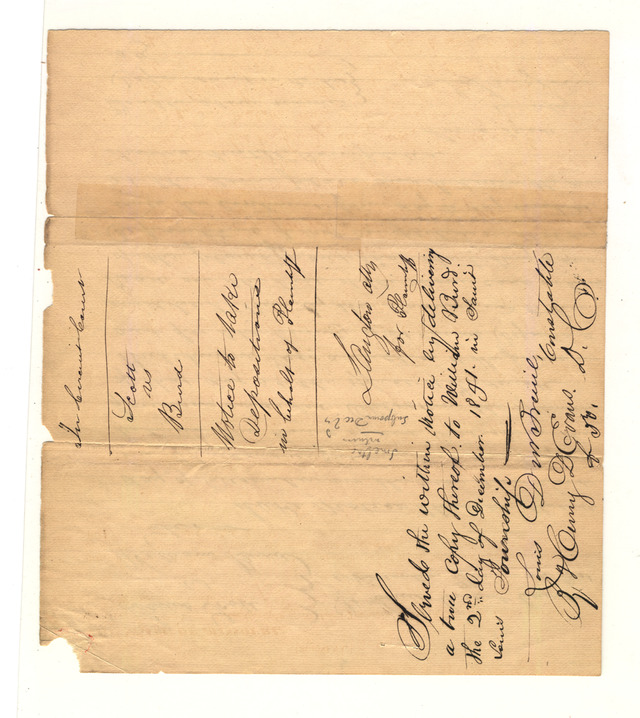 In Circuit Court
Scott
vs
Burd
Notice to take
Depositions
in behalf of Plaintiff
Langdon atty
for Plaintiff
Subpoena Dec 2
return
Served the within Notice by delivering
a true Copy thereof to William Burd
the 2nd day of December 1841. in Saint
Louis Township
Louis Constable
By Henry D Evans D. C.